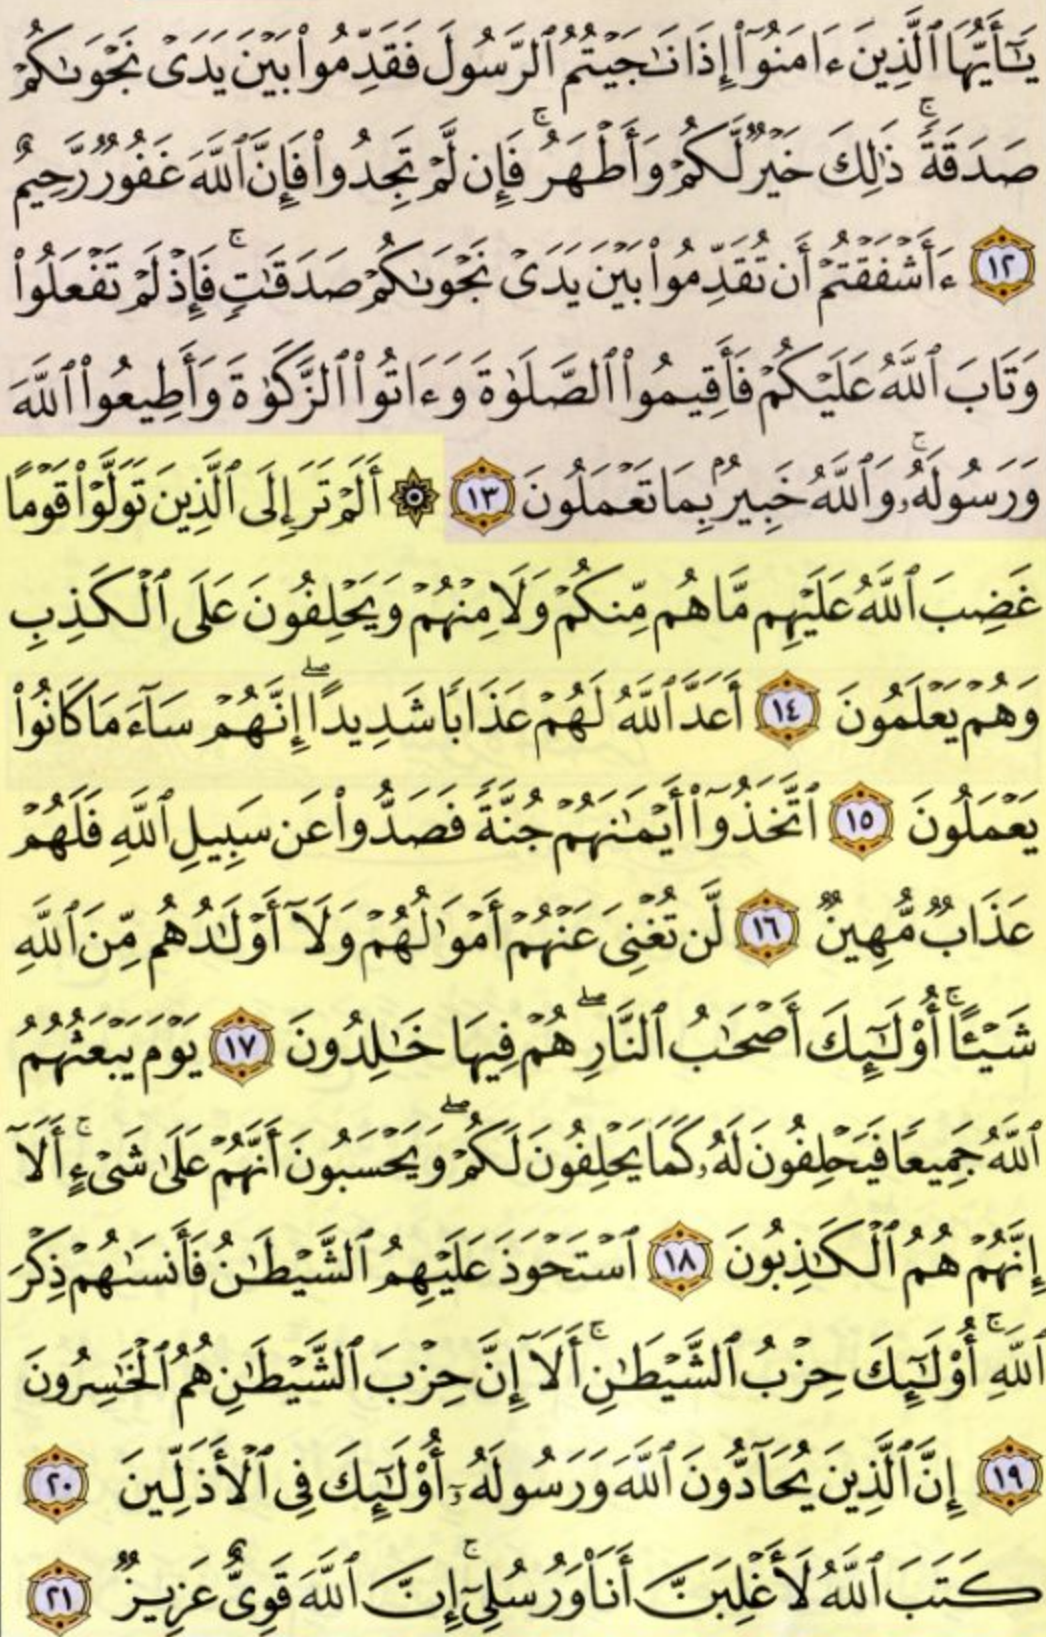 يَٰٓأَيُّهَا ٱلَّذِينَ ءَامَنُوٓا۟ إِذَا نَٰجَيْتُمُ ٱلرَّسُولَ فَقَدِّمُوا۟ بَيْنَ يَدَىْ نَجْوَىٰكُمْ
صَدَقَةً ۚ ذَٰلِكَ خَيْرٌ لَّكُمْ وَأَطْهَرُ ۚ فَإِن لَّمْ تَجِدُوا۟ فَإِنَّ ٱللَّهَ غَفُورٌ رَّحِيمٌ
١٢ ءَأَشْفَقْتُمْ أَن تُقَدِّمُوا۟ بَيْنَ يَدَىْ نَجْوَىٰكُمْ صَدَقَٰتٍ ۚ فَإِذْ لَمْ تَفْعَلُوا۟
وَتَابَ ٱللَّهُ عَلَيْكُمْ فَأَقِيمُوا۟ ٱلصَّلَوٰةَ وَءَاتُوا۟ ٱلزَّكَوٰةَ وَأَطِيعُوا۟ ٱللَّهَ
وَرَسُولَهُۥ ۚ وَٱللَّهُ خَبِيرٌۢ بِمَا تَعْمَلُونَ ١٣ ۞ أَلَمْ تَرَ إِلَى ٱلَّذِينَ تَوَلَّوْا۟ قَوْمًا
غَضِبَ ٱللَّهُ عَلَيْهِم مَّا هُم مِّنكُمْ وَلَا مِنْهُمْ وَيَحْلِفُونَ عَلَى ٱلْكَذِبِ
وَهُمْ يَعْلَمُونَ ١٤ أَعَدَّ ٱللَّهُ لَهُمْ عَذَابًا شَدِيدًا ۖ إِنَّهُمْ سَآءَ مَا كَانُوا۟
يَعْمَلُونَ ١٥ ٱتَّخَذُوٓا۟ أَيْمَٰنَهُمْ جُنَّةً فَصَدُّوا۟ عَن سَبِيلِ ٱللَّهِ فَلَهُمْ
عَذَابٌ مُّهِينٌ ١٦ لَّن تُغْنِىَ عَنْهُمْ أَمْوَٰلُهُمْ وَلَآ أَوْلَٰدُهُم مِّنَ ٱللَّهِ
شَيْـًٔا ۚ أُو۟لَٰٓئِكَ أَصْحَٰبُ ٱلنَّارِ ۖ هُمْ فِيهَا خَٰلِدُونَ ١٧ يَوْمَ يَبْعَثُهُمُ
ٱللَّهُ جَمِيعًا فَيَحْلِفُونَ لَهُۥ كَمَا يَحْلِفُونَ لَكُمْ ۖ وَيَحْسَبُونَ أَنَّهُمْ عَلَىٰ شَىْءٍ ۚ أَلَآ
إِنَّهُمْ هُمُ ٱلْكَٰذِبُونَ ١٨ ٱسْتَحْوَذَ عَلَيْهِمُ ٱلشَّيْطَٰنُ فَأَنسَىٰهُمْ ذِكْرَ
ٱللَّهِ ۚ أُو۟لَٰٓئِكَ حِزْبُ ٱلشَّيْطَٰنِ ۚ أَلَآ إِنَّ حِزْبَ ٱلشَّيْطَٰنِ هُمُ ٱلْخَٰسِرُونَ
١٩ إِنَّ ٱلَّذِينَ يُحَآدُّونَ ٱللَّهَ وَرَسُولَهُۥٓ أُو۟لَٰٓئِكَ فِى ٱلْأَذَلِّينَ ٢٠
كَتَبَ ٱللَّهُ لَأَغْلِبَنَّ أَنَا۠ وَرُسُلِىٓ ۚ إِنَّ ٱللَّهَ قَوِىٌّ عَزِيزٌ ٢١